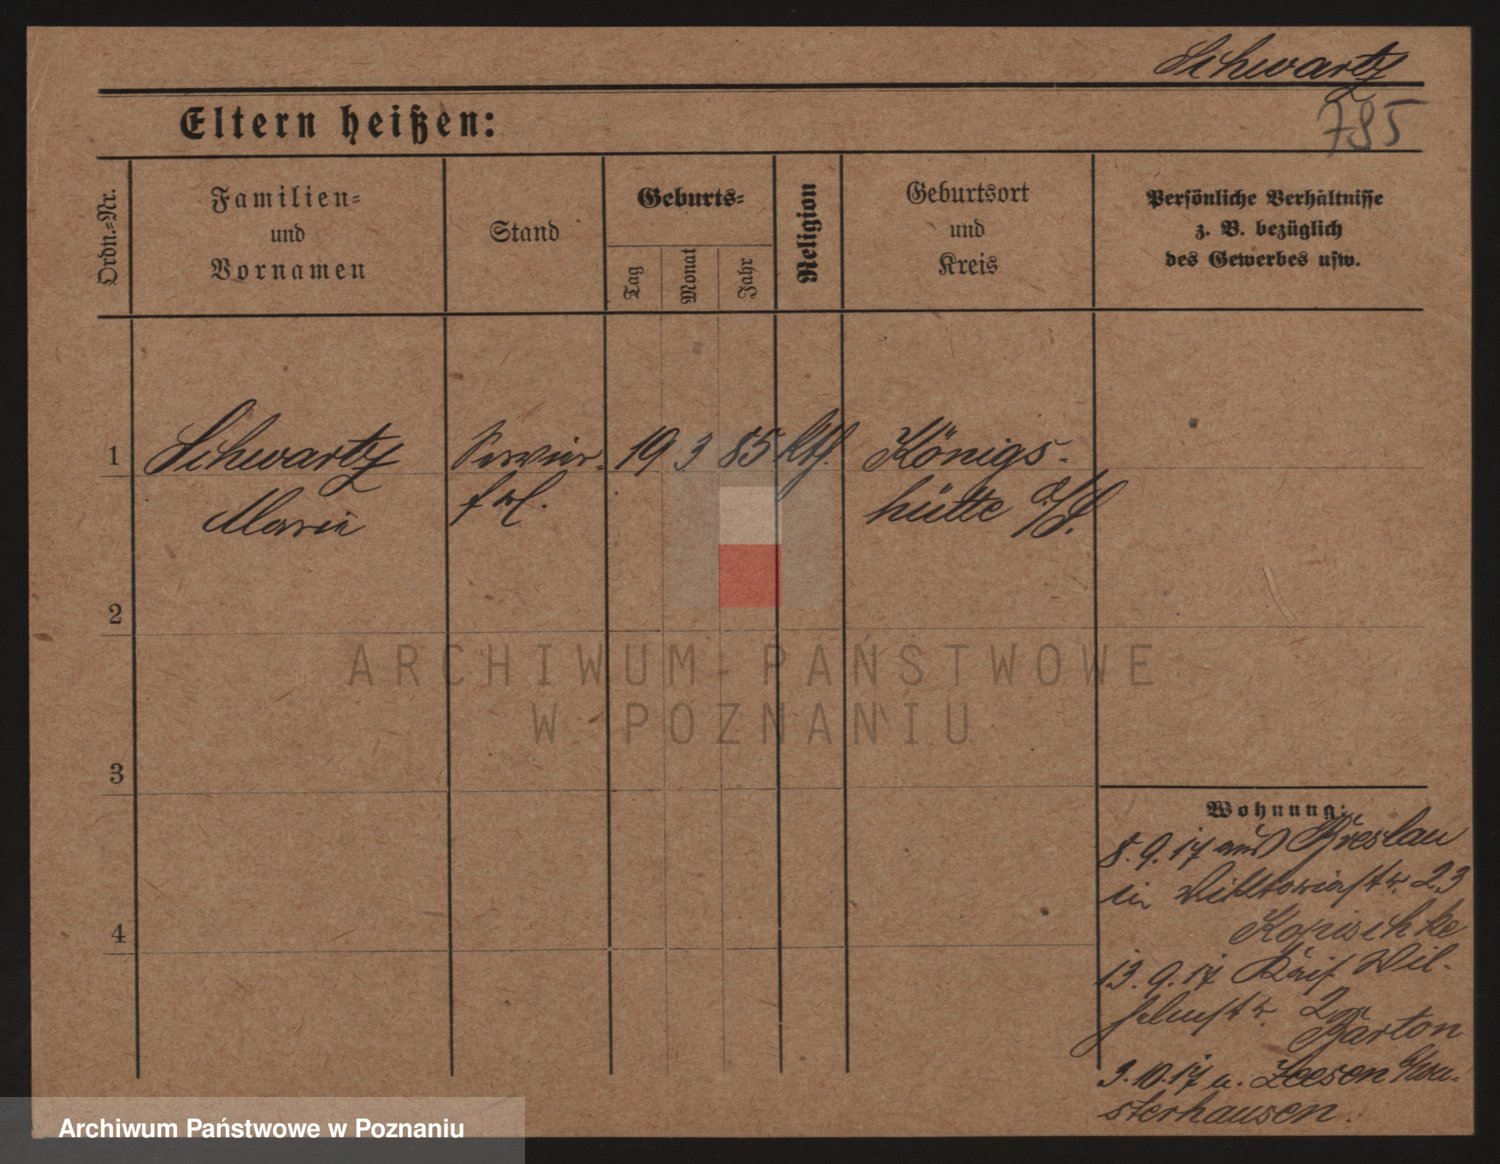 Schwartz
785
Eltern heißen:
Ordn.-Nr.
Familien-
und
Vornamen
Stand
Geburts-
Tag
Monat
Jahr
Religion
Geburtsort
und
Kreis
Persönliche Verhältnisse
z. B. bezüglich
des Gewerbes usw.
1
Schwartz
Marie
Servier-
frl.
19
3
85
kth.
Königs-
hütte O/S.
2
3
4
Wohnung:
8.9.17 aus Breslau
in Viktoriastr. 23
Kopischke
13.9.17 Kais. Wil-
helmstr. 2
Barton
3.10.17 n. Zeesen
sterhausen.
ARCHIWUM PAŃSTWOWE
W POZNANIU
Archiwum Państwowe w Poznaniu